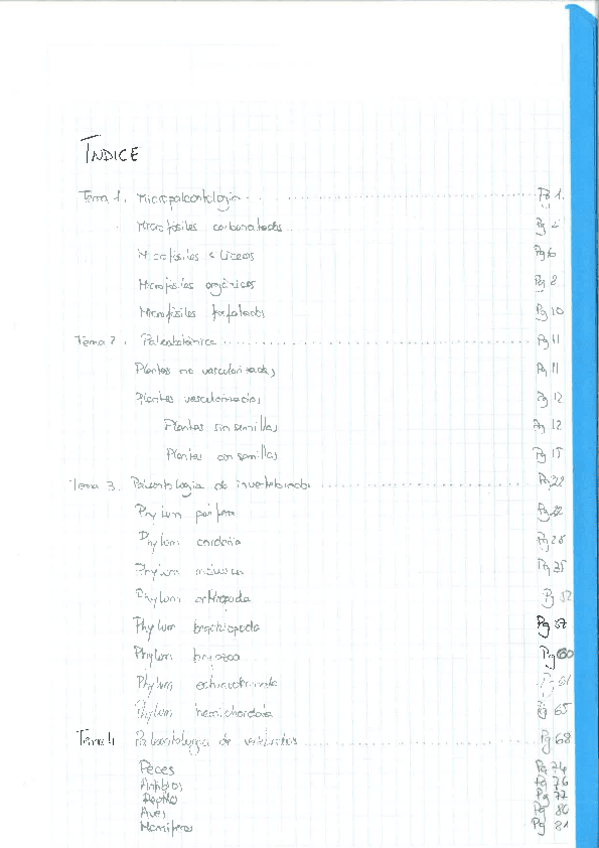 ÍNDICE
Tema 1. Micropaleontología Pg 1.
Microfósiles carbonatados
Microfósiles silíceos Pg 6
Microfósiles orgánicos Pg 8
Microfósiles fosfatados Pg 10
Tema 2. Paleobotánica Pg 11
Plantas no vascularizadas Pg 11
Plantas Pg 12
Plantas sin semillas Pg 12
Plantas con semillas Pg 15
Tema 3. Paleontología de invertebrados Pg 22
Phylum porifera Pg 22
Phylum Pg 26
Phylum molusca Pg 35
Phylum arthropoda Pg 52
Phylum brachiopoda Pg 57
Phylum bryozoa Pg 60
Phylum echinodermata Pg 61
Phylum hemichordata Pg 65
Tema 4 Paleontología de vertebrados Pg 68
Peces Pg 74
Anfibios Pg 76
Reptiles Pg 77
Aves Pg 80
Mamíferos Pg 81